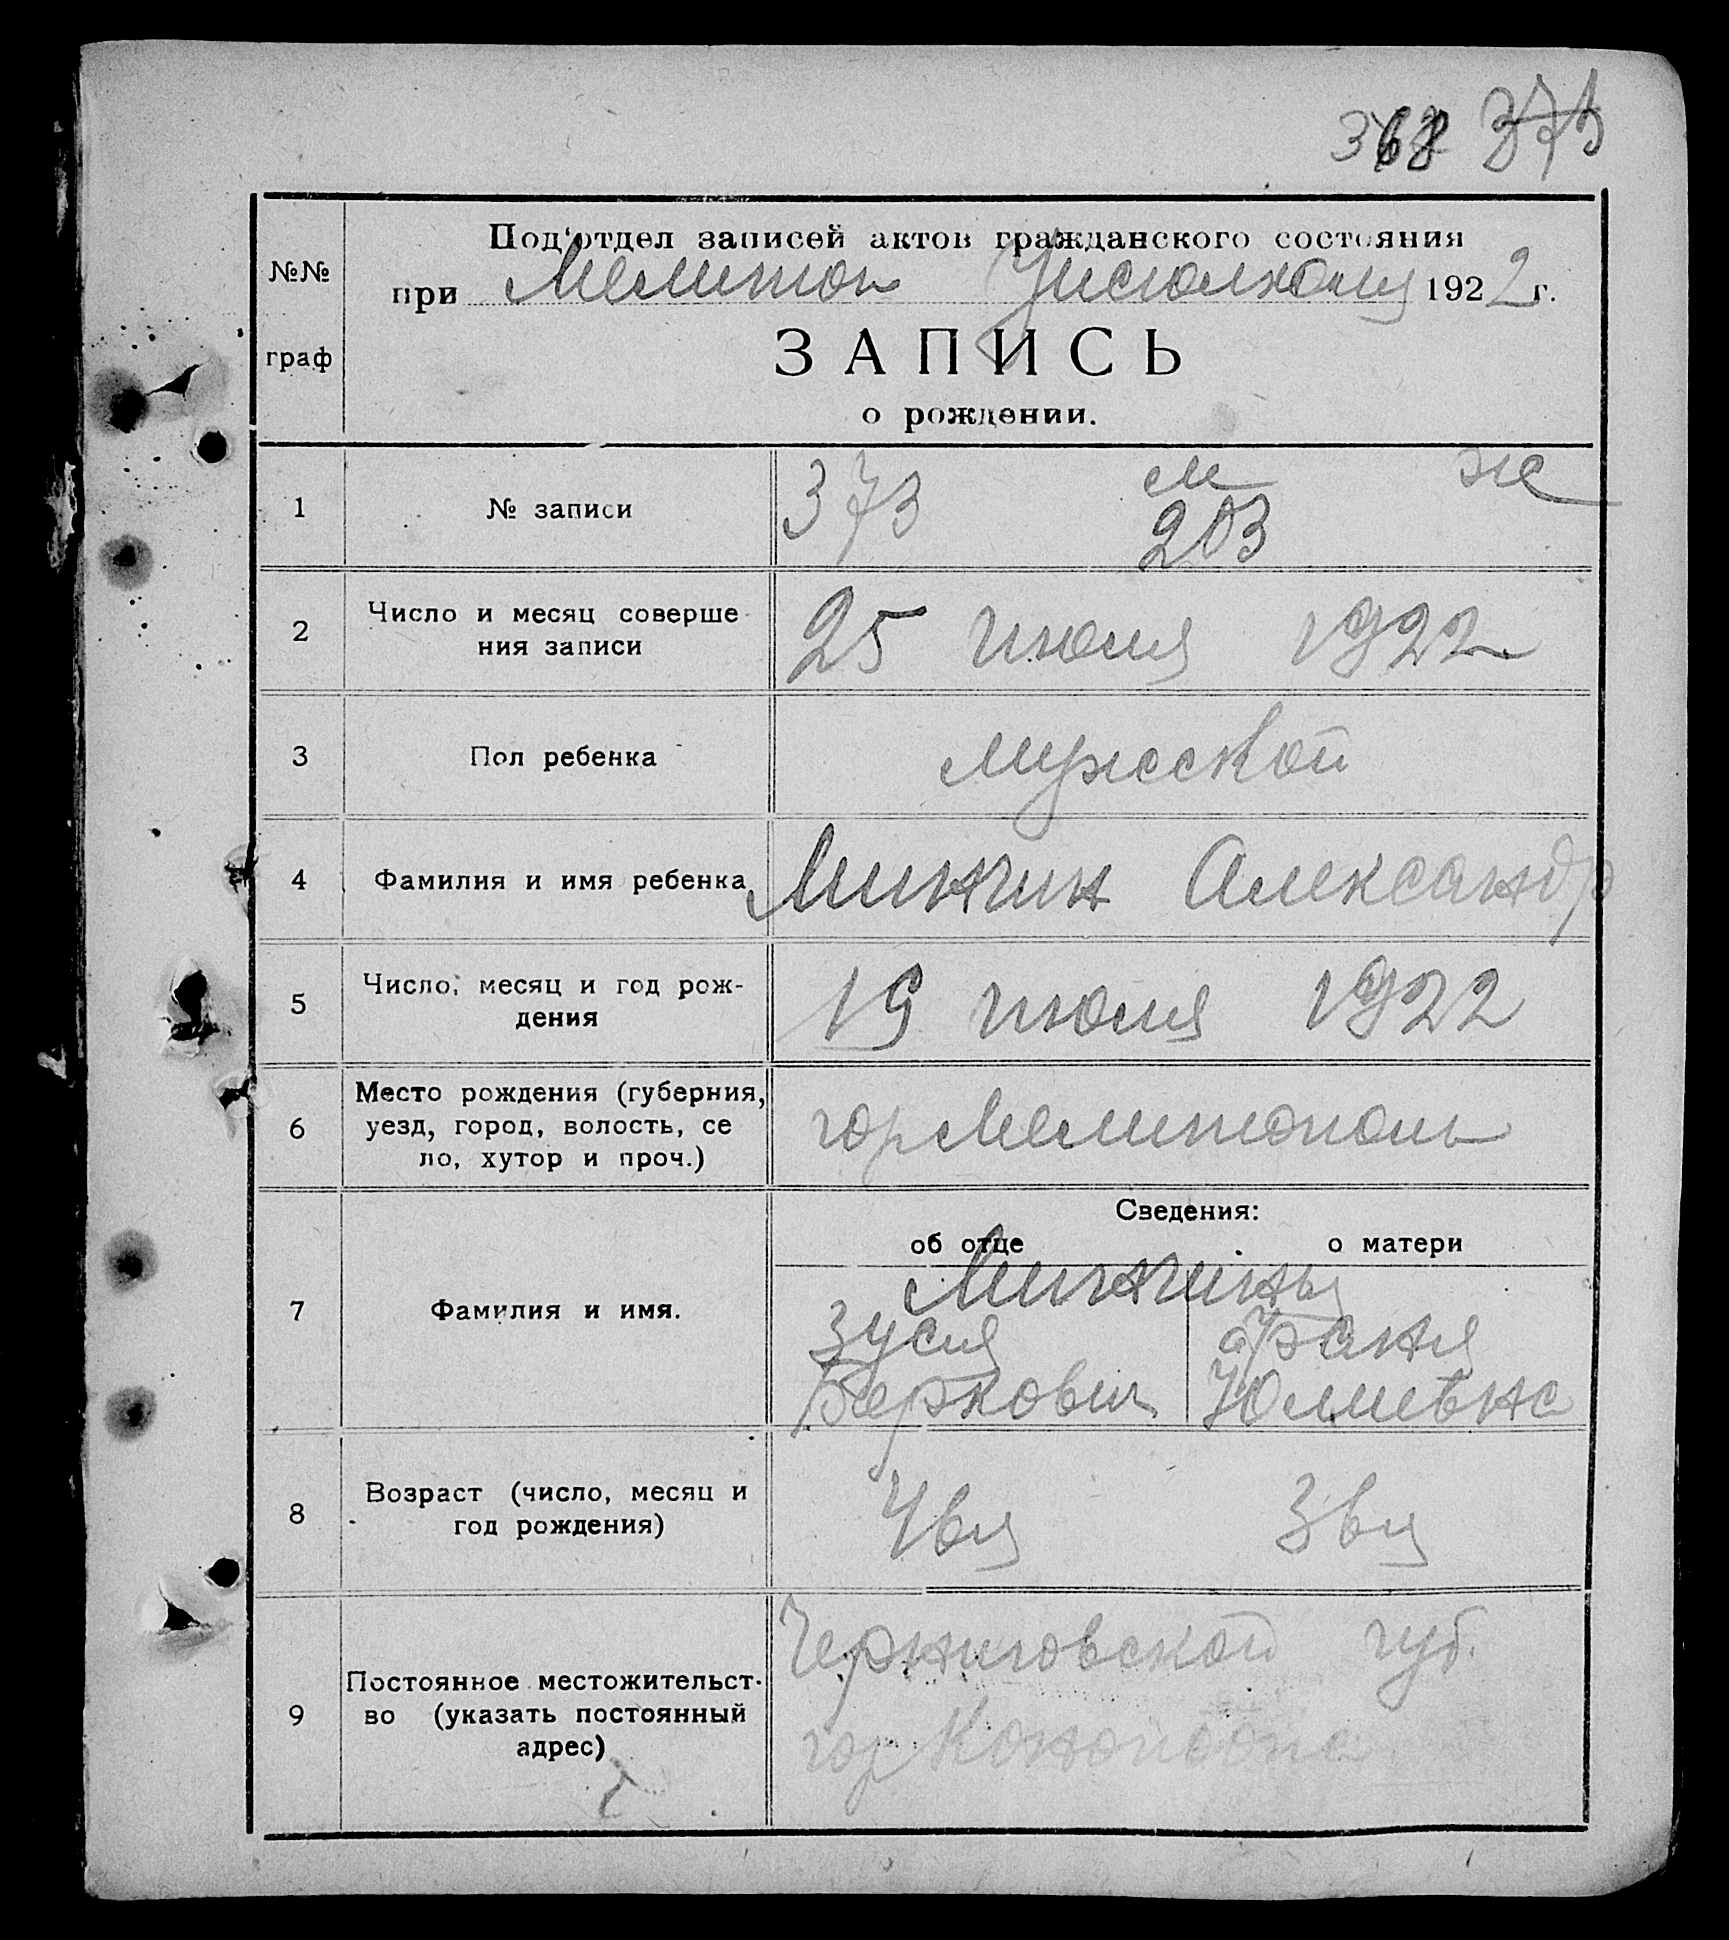 368 373
№№
граф
Под‘отдел записей актов гражданского состояния
при Мелитоп Уисполкому 1922 г.
ЗАПИСЬ
о рождении.
1 № записи 373 м 203 ж
2 Число и месяц соверше
ния записи 25 июля 1922
3 Пол ребенка мужской
4 Фамилия и имя ребенка Минкин Александр
5 Число, месяц и год рож-
дения 19 июля 1922
6 Место рождения (губерния,
уезд, город, волость, се
ло, хутор и проч.) гор Мелитополь
Сведения:
об отце о матери
7 Фамилия и имя. Минкины
Зуся Фаня
Беркович Юлиевна
8 Возраст (число, месяц и
год рождения)
9 Постоянное местожительст-
во (указать постоянный
адрес) Черниговской губ.
гор Конотопа